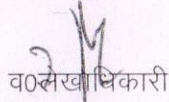 व०लेखाधिकारी